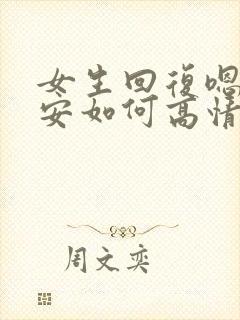 女生回復嗯
安如何高情
周文奕